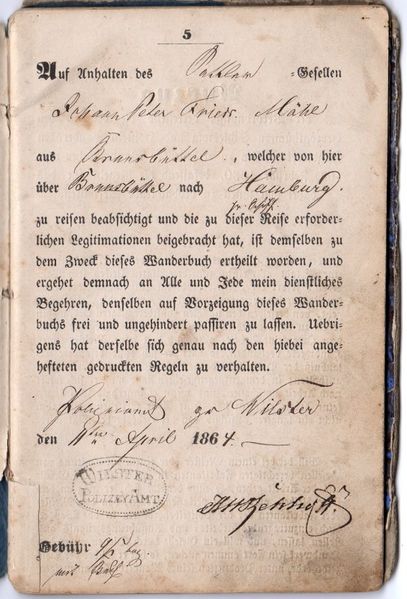 5
Auf Anhalten des Sattler -Gesellen
Johann Peter Fried. Mähl
aus Brunsbüttel, welcher von hier
über Brunsbüttel nach Hamburg.
pr. Schiff
zu reisen beabsichtigt und die zu dieser Reise erforder-
lichen Legitimationen beigebracht hat, ist demselben zu
dem Zweck dieses Wanderbuch ertheilt worden, und
ergehet demnach an Alle und Jede mein dienstliches
Begehren, denselben auf Vorzeigung dieses Wander-
buchs frei und ungehindert passiren zu lassen. Uebri-
gens hat derselbe sich genau nach den hiebei ange-
hefteten gedruckten Regeln zu verhalten.
Polizeiamt zu Wilster
den April 1864.
WILSTER
POLIZEYAMT
Gebühr
mit